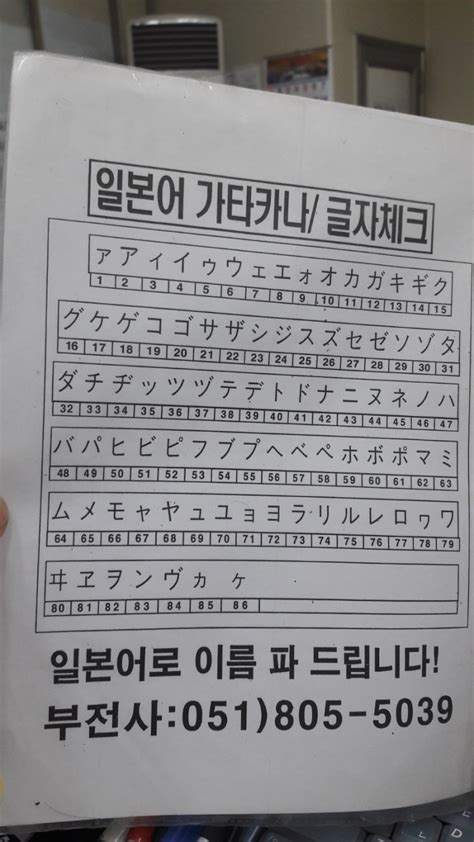 일본어 가타카나/ 글자체크
ァアィイゥウェエォオカガキギク
1 2 3 4 5 6 7 8 9 10 11 12 13 14 15
グケゲコゴサザシジスズセゼソゾタ
16 17 18 19 20 21 22 23 24 25 26 27 28 29 30 31
ダチヂッツヅテデトドナニヌネノハ
32 33 34 35 36 37 38 39 40 41 42 43 44 45 46 47
バパヒビピフブプヘベペホボポマミ
48 49 50 51 52 53 54 55 56 57 58 59 60 61 62 63
ムメモャヤュユョヨラリルレロヮワ
64 65 66 67 68 69 70 71 72 73 74 75 76 77 78 79
ヰヱヲンヴヵ ヶ
80 81 82 83 84 85 86
일본어로 이름 파 드립니다!
부전사:051)805-5039